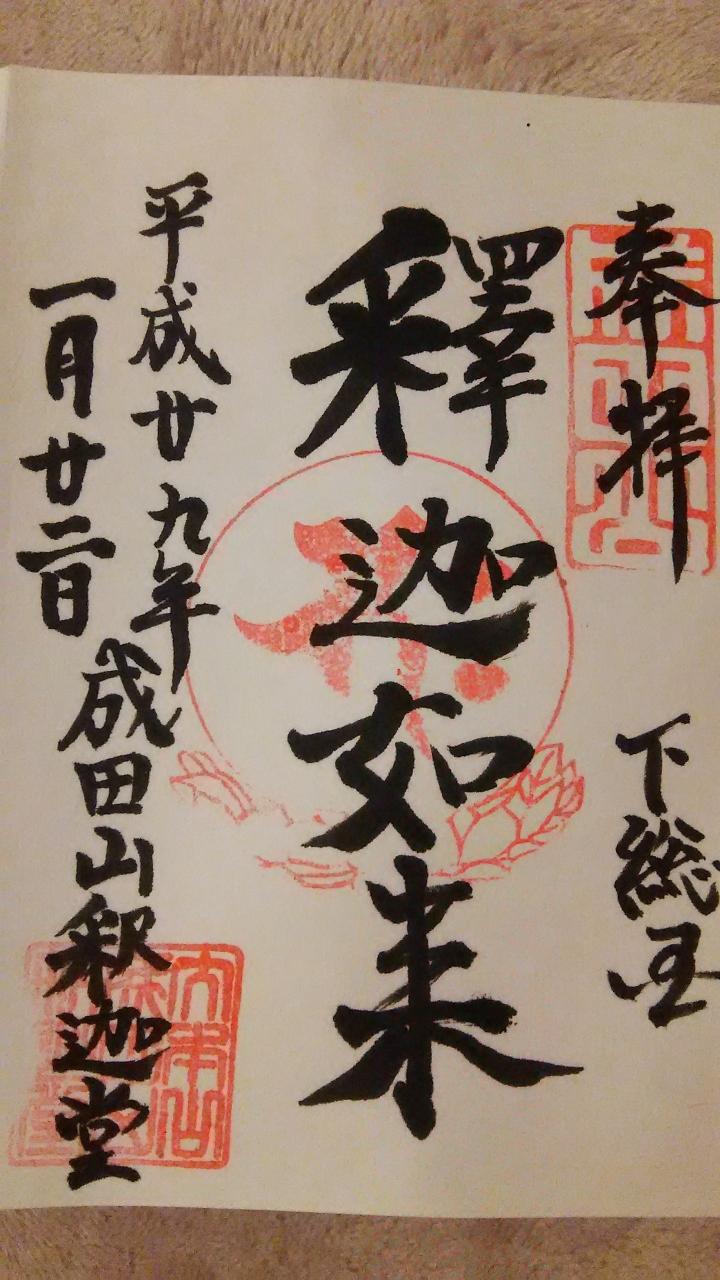 奉拝
下総国
釋迦如来
平成廿九年
一月廿二日
成田山釈迦堂